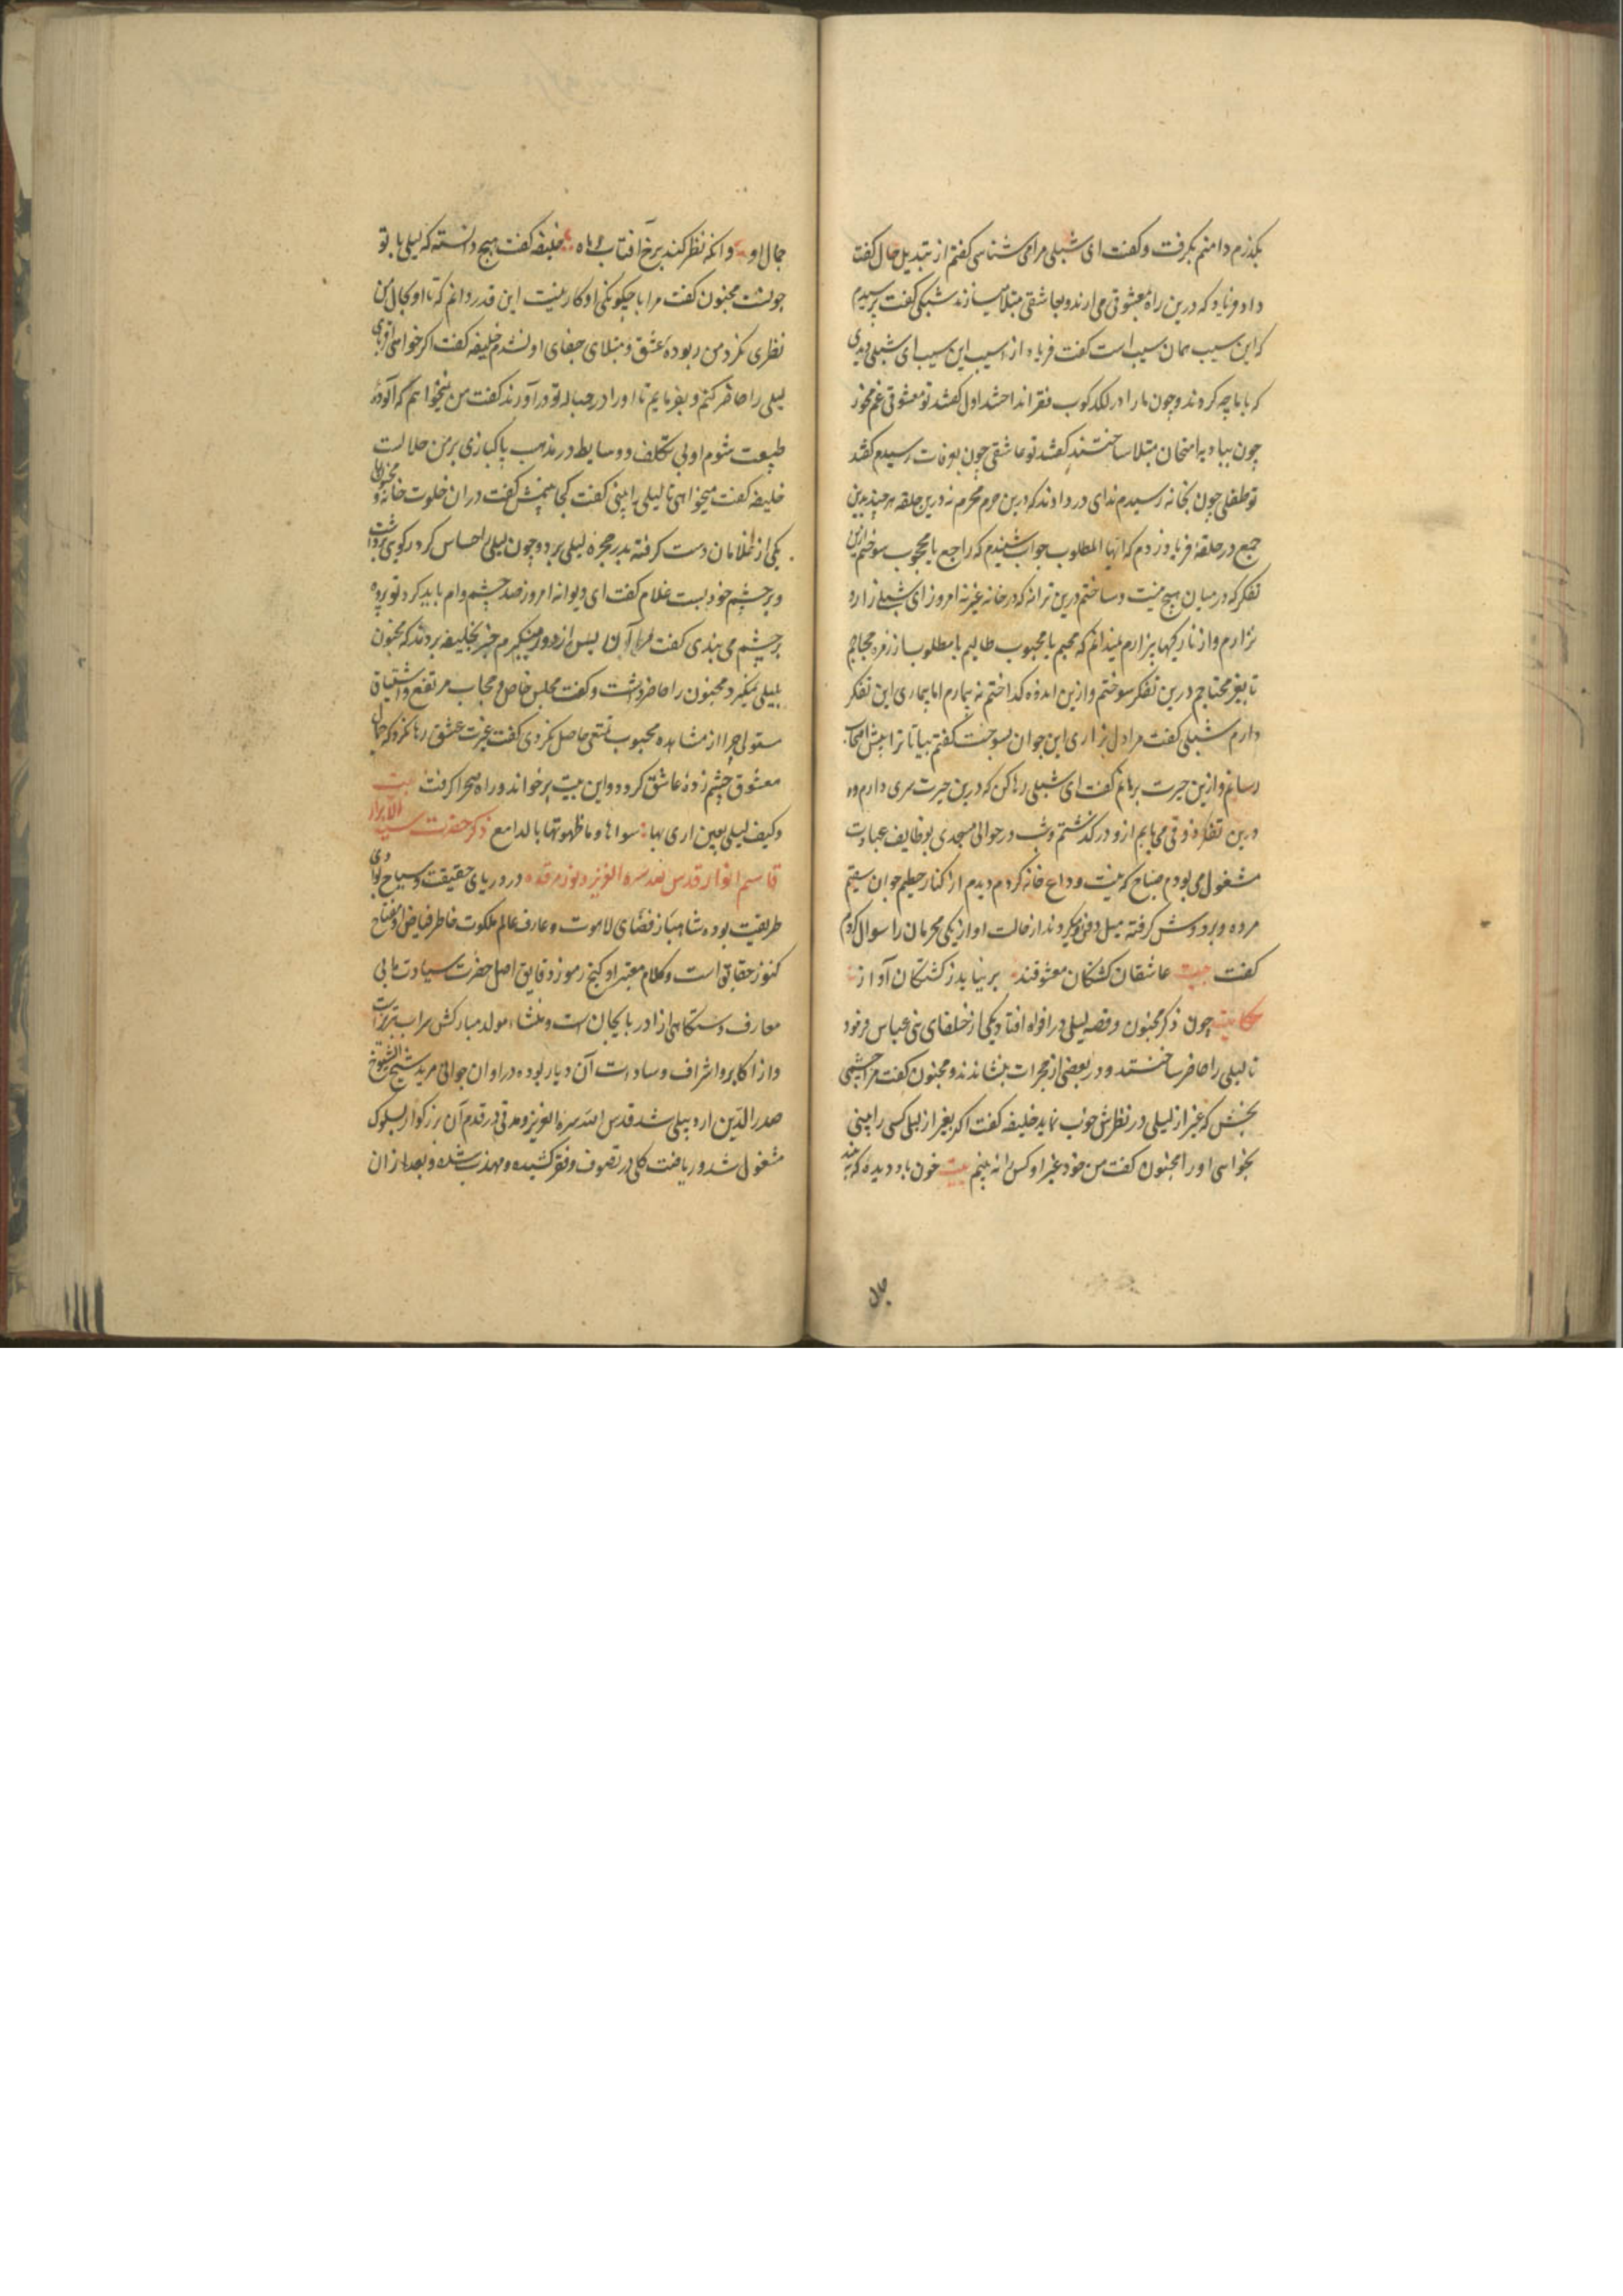 بگذرم دامنم بگرفت وگفت ای شبلی مرا می شناسی گفتم از تبدیل حال گفت
داد و فریاد که درین راه معشوقی می ارند و بعاشقی مبتلا میسازند شبلی گفت پرسیدم
که این سیب همان سیب است گفت فریاد از اسیب این سیب ای شبلی دیدی
که با ما چه کردند و چون ما را در لکدکوب فقر انداختند اول گفتند تو معشوقی غم مخور
چون ببادیه امتحان مبتلا ساختند گفتند تو عاشقی چون بعرفات رسیدم گفتند
تو طفلی چون بخانه رسیدم ندای در دادند که درین حرم محرم نه درین حلقه هر چند بدین
جمع در حلقهٔ فریاد زدم که ایها المطلوب جواب شنیدم که راجع یا محجوب سوختم ازین
تفکر که در میان هیچ نیست و ساختم درین ترانه که در خانه غیر نه امروز ای شبلی زار و
نزارم و از تاریکیها بیزارم نمیدانم که محبم یا محبوب طالبم یا مطلوب از زمره حجابم
تا بغیر محتاجم درین تفکر سوختم و ازین اندوه کداختم نه بیمارم اما بیماری این تفکر
دارم شبلی گفت مرا دل بزاری این جوان بسوخت گفتم بیا تا ترا پیش اصحاب
رسانم و ازین حیرت برهانم گفت ای شبلی رها کن که درین حیرت سری دارم و
درین تفکر ذوقی می یابم ازو درگذشتم و شب در حوالی مسجدی بوظایف عبادت
مشغول می بودم صباح که نیت وداع خانه کردم دیدم از کنار حطیم جوان سقیم
مرده و بر دوش گرفته میل دفن میکردند از حالت او از یکی محرمان را سوال کردم
گفت بیت عاشقان کشتگان معشوقند بر نیاید ز کشتگان آواز
حکایت چون ذکر مجنون و قصه لیلی در افواه افتاد یکی از خلفای بنی عباس فرمود
تا لیلی را حاضر ساختند و در بعضی از حجرات بنشاندند و مجنون گفت مرا چشمی
بخش که غیر از لیلی در نظرش خوب نماید خلیفه گفت اگر بغیر از لیلی کسی را بینی
بخواهی او را مجنون گفت من خود غیر او کس را نه بینم بیت خون باد دیدهٔ که بیند
جمال
جمال او وانکه نظر کند برخ آفتاب و ماه خلیفه گفت هیچ دانسته که لیلی با تو
چونست مجنون گفت مرا با چکونکی او کار نیست این قدر دانم که تا او بحال من
نظری نکرد من ربودهٔ عشق و مبتلای جفای او نشدم خلیفه گفت اگر خواهی اقربای
لیلی را حاضر کنم و بفرمایم تا او را در حباله تو در آورند گفت من نمیخواهم که آلودهٔ
طبیعت شوم او بی تکلف و وسایط در مذهب پاکبازی بر من حلالست
خلیفه گفت میخواهی تا لیلی را بینی گفت کجا بینمش گفت در ان خلوت خانه و مجنون را
یکی از غلامان دست گرفته بدر حجرهٔ لیلی برد و چون لیلی را احساس کرد رکوی برداشت
و بر چشم خود بست غلام گفت ای دیوانه امروز صد چشم وام باید کرد تو پرده
بر چشم می بندی گفت مرا آن بس از دور مینگرم خبر بخلیفه بردند که مجنون
بلیلی نمینگرد مجنون را حاضر داشت و گفت مجلس خاص و حجاب مرتفع و اشتیاق
مستولی چرا از مشاهده محبوب تمتعی حاصل نکردی گفت غیرت عشق رها نکرد که جمال
معشوق چشم زدهٔ عاشق گردد و این بیت برخواند و راه صحرا گرفت بیت
وکیف لیلی بعین اری بها سواها وما طهرتها بالمدامع ذکر حضرت سید الابرار
قاسم انوار قدس الله سره العزیز و نور مرقده در دریای حقیقت و سیاح بوادی
طریقت بوده شاهباز فضای لاهوت و عارف عالم ملکوت خاطر فیاض او مفتاح
کنوز حقایق است و کلام معتبر او کنج رموز دقایق اصل حضرت سیادت مابی
معارف دستکاهی از ادربایجان است و منشاء مولد مبارکش سراب تبریز است
و از اکابر و اشراف و سادات آن دیار بوده در اوان جوانی مرید شیخ الشیوخ
صدر الدین اردبیلی شد قدس الله سره العزیز و مدتی در قدم آن بزرکوار بسلوک
مشغول شد و ریاضت کلی در تصوف و فقر کشیده و مهذب شده و بعد از ان